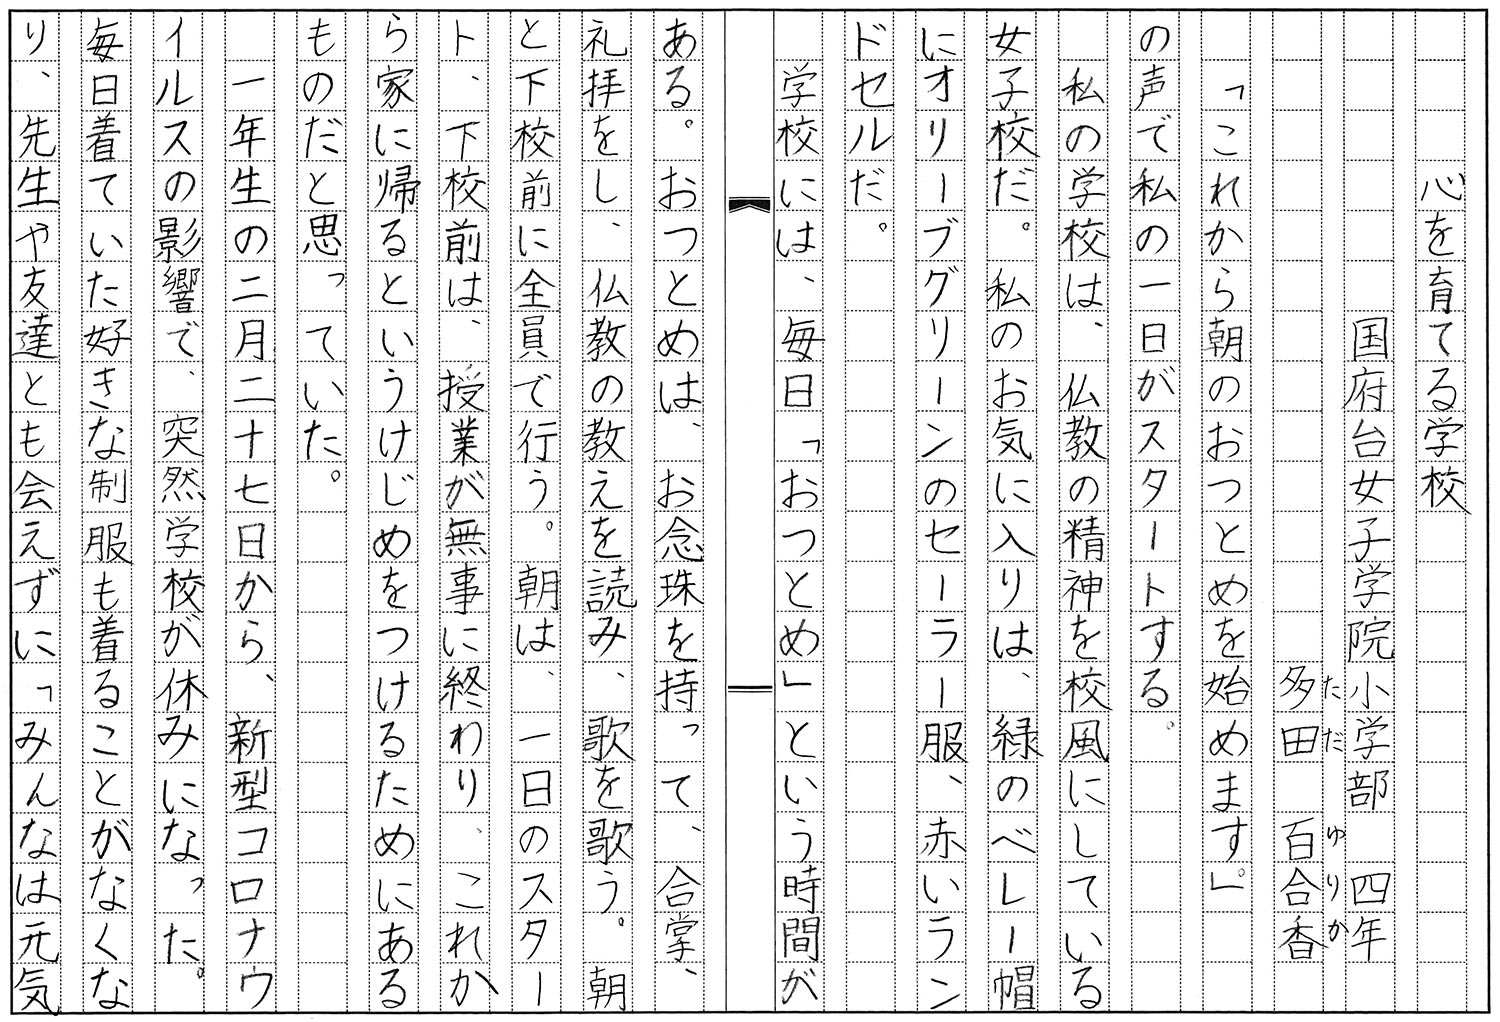 心を育てる学校
国府台女子学院小学部　四年
多田　百合香
ただ　ゆりか
「これから朝のおつとめを始めます。」
の声で私の一日がスタートする。
私の学校は、仏教の精神を校風にしている
女子校だ。私のお気に入りは、緑のベレー帽
にオリーブグリーンのセーラー服、赤いラン
ドセルだ。
学校には、毎日「おつとめ」という時間が
ある。おつとめは、お念珠を持って、合掌、
礼拝をし、仏教の教えを読み、歌を歌う。朝
と下校前に全員で行う。朝は、一日のスター
ト、下校前は、授業が無事に終わり、これか
ら家に帰るというけじめをつけるためにある
ものだと思っていた。
一年生の二月二十七日から、新型コロナウ
イルスの影響で、突然学校が休みになった。
毎日着ていた好きな制服も着ることがなくな
り、先生や友達とも会えずに「みんなは元気